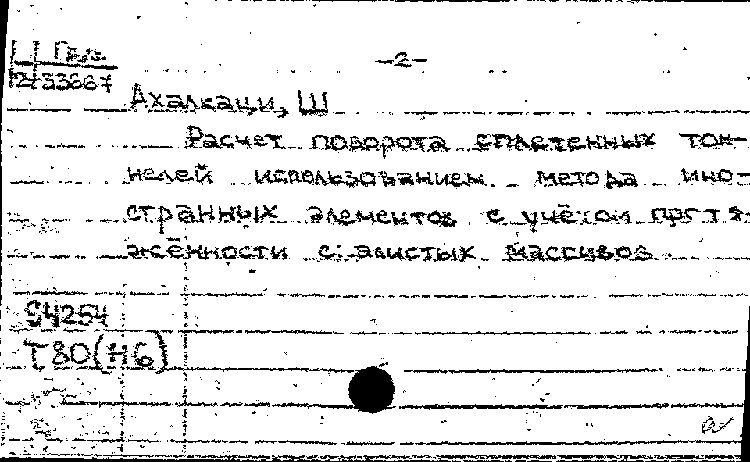 -2-
2-33667
Ахалкаци, Ш
Расчет поворота сплетенных тон-
нелей использованием метода ино-
странных элементов с учётом протя-
жённости скалистых массивов
S4254
T80(H6)